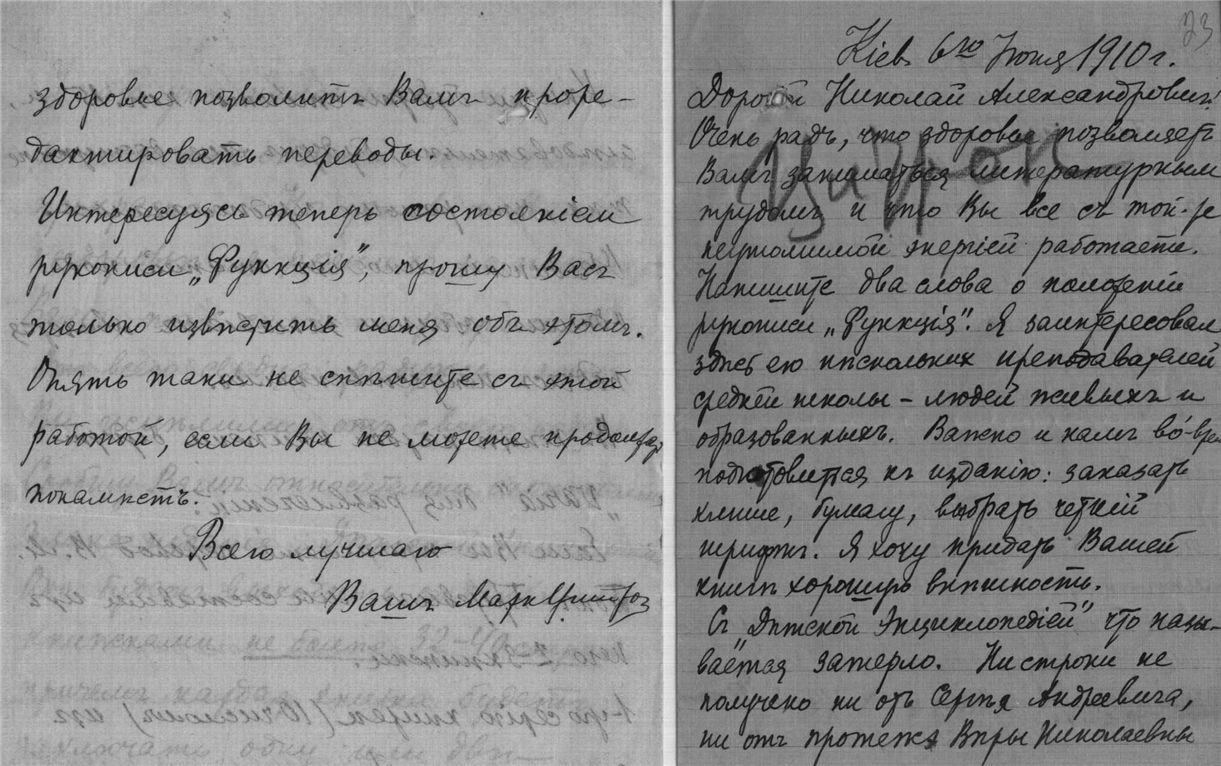 здоровье позволитъ Вамъ проре-
дактировать переводы.
Интересуясь теперь состояніем
рукописи „Функція”, прошу Васъ
только извѣстить меня объ этомъ.
Опять таки не спѣшите съ этой
работой, если Вы не можете продолжать
покамѣстъ.
Всего лучшаго
Вашъ Марк
23
Кіев 6го 1910 г.
Дорогой Николай Александрович!
Очень радъ, что здоровье позволяетъ
Вамъ заниматься литературным
трудомъ и что Вы все съ той-же
неутомимой энергіей работаете.
Напишите два слова о положеніи
рукописи „Функція”. Я заинтересовал
здѣсь ею нѣскольких преподавателей
средней школы – людей живыхъ и
образованныхъ. Важно и намъ во-время
подготовится къ изданію: заказать
клише, бумагу, выбрать четкій
шрифтъ. Я хочу придать Вашей
книгѣ хорошую внѣшность.
Съ „Дѣтской Энциклопедіей” что назы-
вается затерло. Ни строки не
получено ни отъ Сергѣя Андреевича,
ни отъ протежэ Вѣры Николаевны